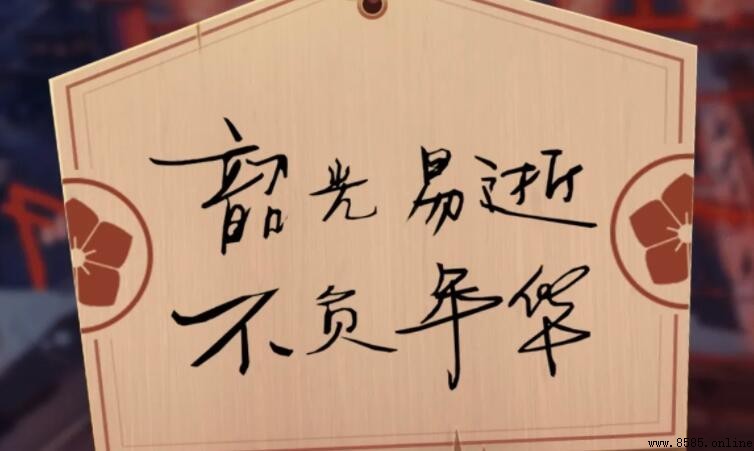 韶光易逝
不负年华
www.8585.online